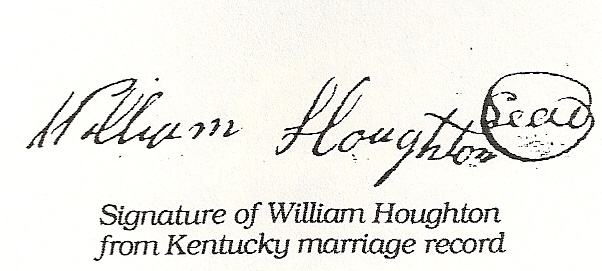 William Houghton Seal
Signature of William Houghton
from Kentucky marriage record